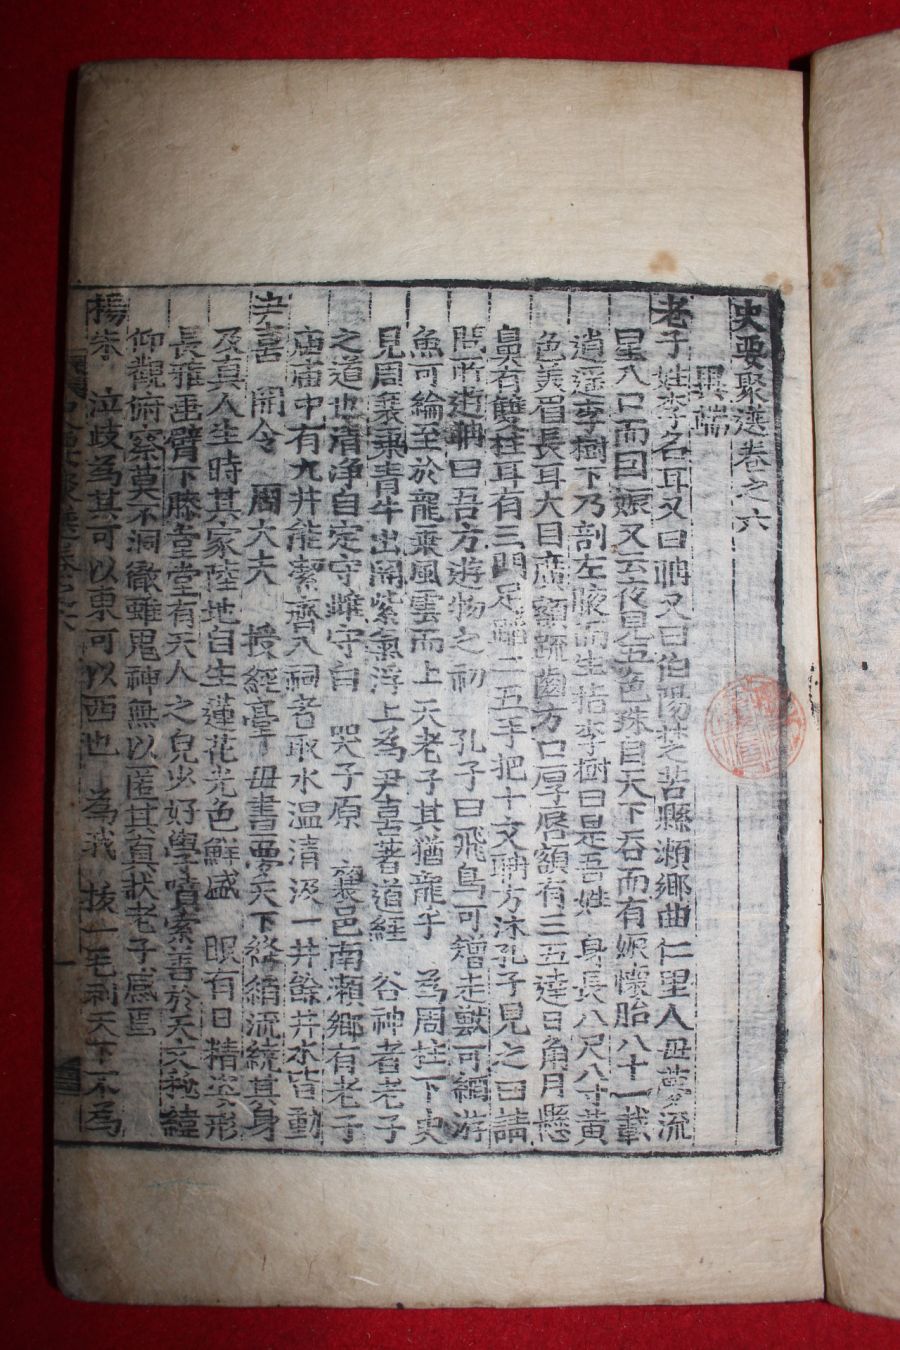 史要聚選卷之六
異端
老子姓李名耳又曰聃又曰伯陽楚苦縣瀬鄉曲仁里人母夢流
星入口而曰娠又云夜見五色珠自天下吞而有娠懷胎八十一載
逍遙李樹下乃剖左腋而生指李樹曰是吾姓 身長八尺八寸黃
色美眉長耳大目廣額疏齒方口厚唇額有三五達日角月懸
鼻有雙柱耳有三門足蹈二五手把十文聃方沐孔子見之曰請
問所遊聃曰吾方遊物之初 孔子曰飛鳥可矰走獸可網游
魚可綸至於龍乘風雲而上天老子其猶龍乎 為周柱下史
見周衰乘青牛出關紫氣浮上為尹喜著道經 谷神者老子
之道也清淨自定守雌守白 哭子原 襄邑南瀬鄉有老子
庙庙中有九井能潔齋入祠者取水温清汲一井餘井水皆動
尹喜 關令 周大夫 授經臺 母晝夢天下絳綃流繞其身
及真人生時其家陸地自生蓮花光色鮮盛 眼有日精姿形
長雅垂臂下膝堂堂有天人之皃少好學賾索善於天文秘緯
仰觀俯察莫不洞徹雖鬼神無以匿其真狀老子感焉
楊朱 泣歧為其可以東可以西也 為我 拔一毛利天下不為